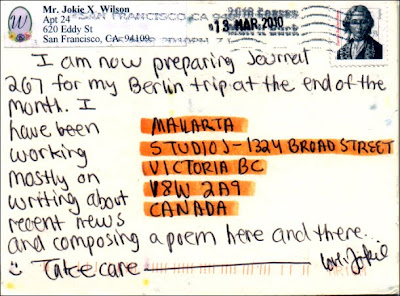 Mr. Jokie X Wilson
Apt 24
620 Eddy St
San Francisco, CA 94109
SAN FRANCISCO CA
13 MAR 2010
I am now preparing Journal
267 for my Berlin trip at the end of the
month. I
have been
working
mostly on
writing about
recent news
and composing a poem here and there..
MAILARTA
STUDIO J - 1324 BROAD STREET
VICTORIA BC
V8W 2A9
CANADA
Take care
love. Jokie